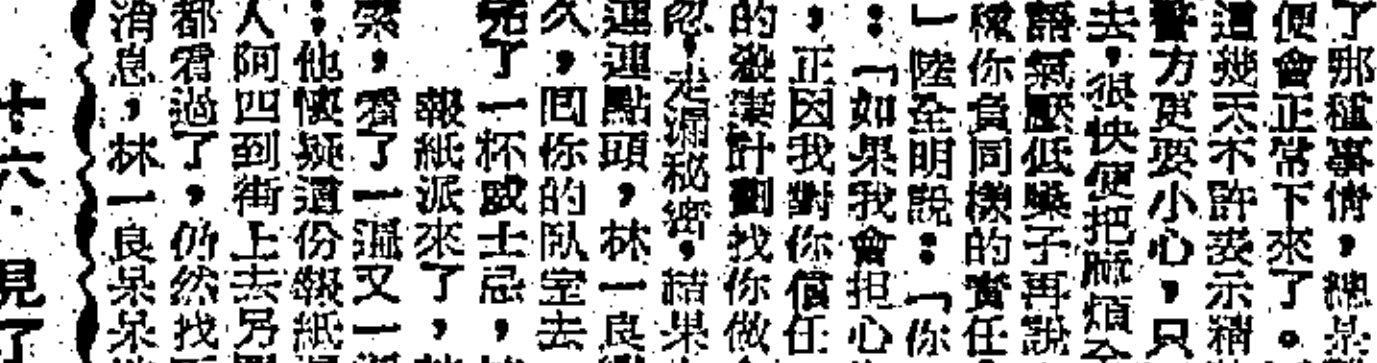 了那種事情，總是
便會正常下來了。
這幾天不許妄示精
警方更要小心，只
去，很快便把麻煩
語氣壓低嗓子再說
你負同樣的責任
」陸全明說：「你
：「如果我會担心
，正因我對你信任
的殺案計劃找你做
忽，走漏秘密，結果
連連點頭，林一良
久，回你的臥室去
完了一杯威士忌，
報紙派來了，
索，看了一遍又一遍
；他懷疑這份報紙
人阿四到街上去另
都看過了，仍然找
消息，林一良呆呆
十六．見了